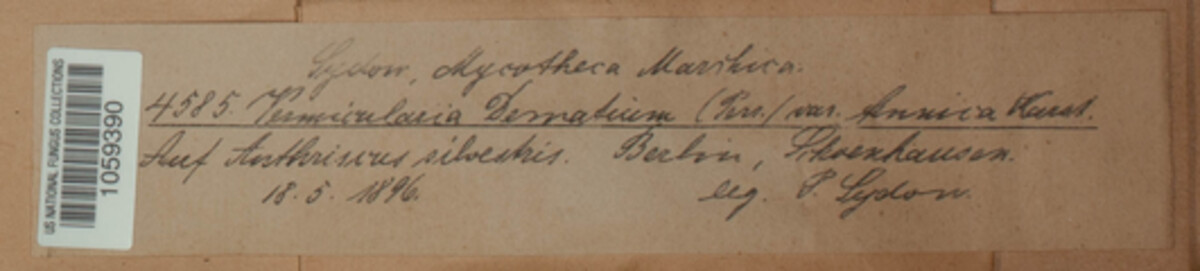 Sydow, Mycotheca Marchica.
4585. Vermicularia Dematium (Prs.) var.
Auf Anthriscus silvestris. Berlin, Schoenhausen.
18. 5. 1896. leg. P. Sydow.
US NATIONAL FUNGUS COLLECTIONS
1059390